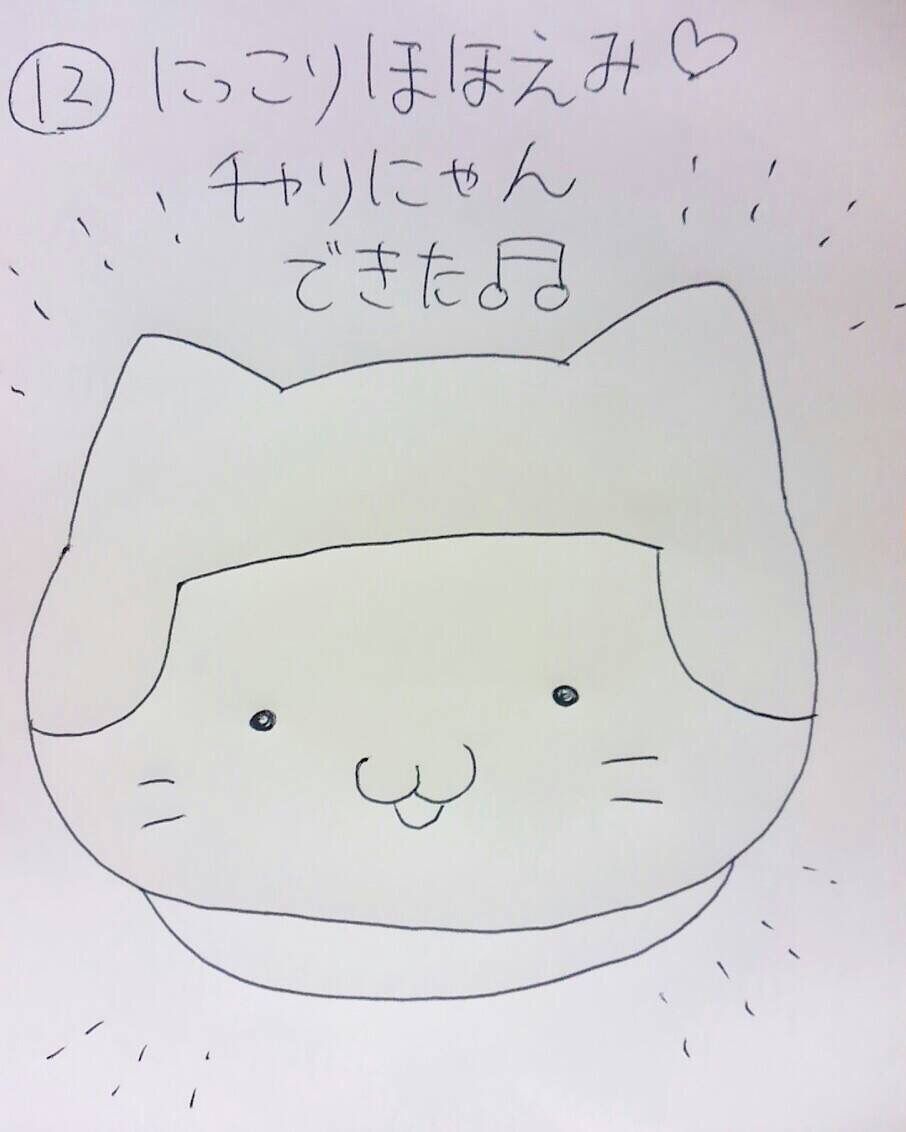 ⑫ にっこりほほえみ♡
チャリにゃん
できた♫